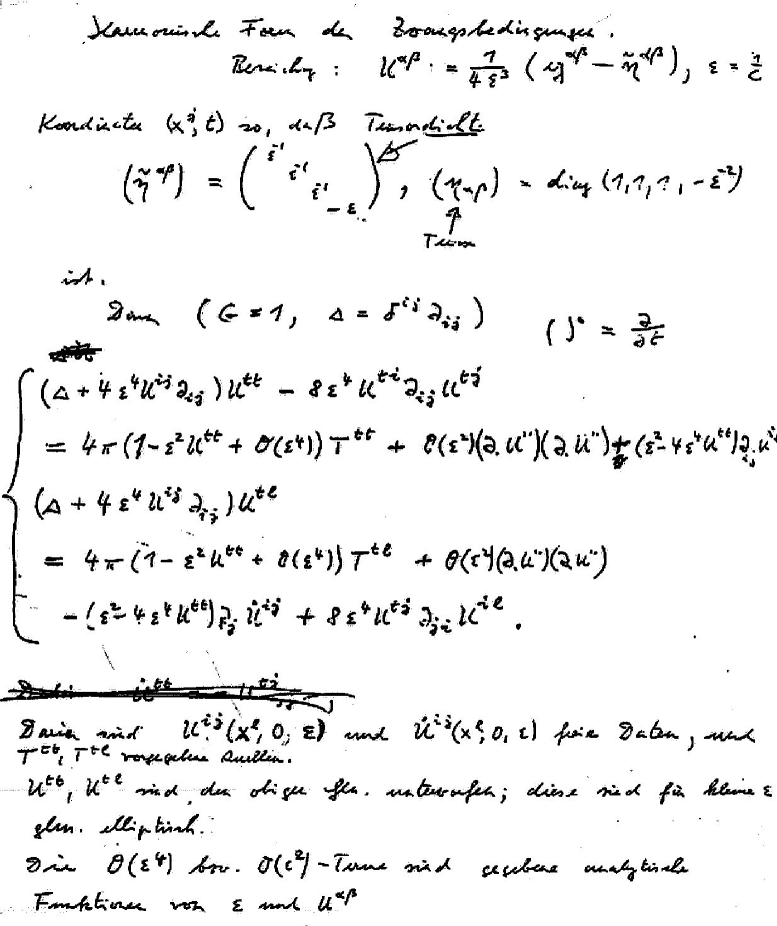 Harmonische Form der Zwangsbedingungen.
Bezeichng: U^{αβ} := \frac{1}{4ε^3} (𝔤^{αβ} − \tilde{η}^{αβ}), ε = \frac{1}{c}
Koordinaten (x^j, t) so, daß Tensordichte
(\tilde{η}^{αβ}) = (ε^{-1} ε^{-1} ε^{-1} −ε), (η_{αβ}) = diag (1, 1, 1, −ε^{-2})
Tensor
ist.
Dann (G = 1, Δ = δ^{ij} ∂_{ij}) ( )^• = \frac{∂}{∂t}
(Δ + 4ε^4 U^{ij} ∂_{ij}) U^{tt} − 8ε^4 U^{ti} ∂_{ij} U^{tj}
= 4π (1 − ε^2 U^{tt} + O(ε^4)) T^{tt} + O(ε^2)(∂.U^{..})(∂.U^{..}) + (ε^2 − 4ε^4 U^{tt}) ∂_{ij} U^{ij}
(Δ + 4ε^4 U^{ij} ∂_{ij}) U^{tl}
= 4π (1 − ε^2 U^{tt} + O(ε^4)) T^{tl} + O(ε^2)(∂.U^{..})(∂.U^{..})
− (ε^2 − 4ε^4 U^{tt}) ∂_j \dot{U}^{lj} + 8ε^4 U^{tj} ∂_{ji} U^{il}.
Darin sind U^{ij}(x^l, 0, ε) und \dot{U}^{ij}(x^l, 0, ε) freie Daten, und
T^{tt}, T^{tl} vorgegebene Quellen.
U^{tt}, U^{tl} sind den obigen Gln. unterworfen; diese sind für kleine ε
glm. elliptisch.
Die O(ε^4) bzw. O(ε^2)-Terme sind gegebene analytische
Funktionen von ε und U^{αβ}